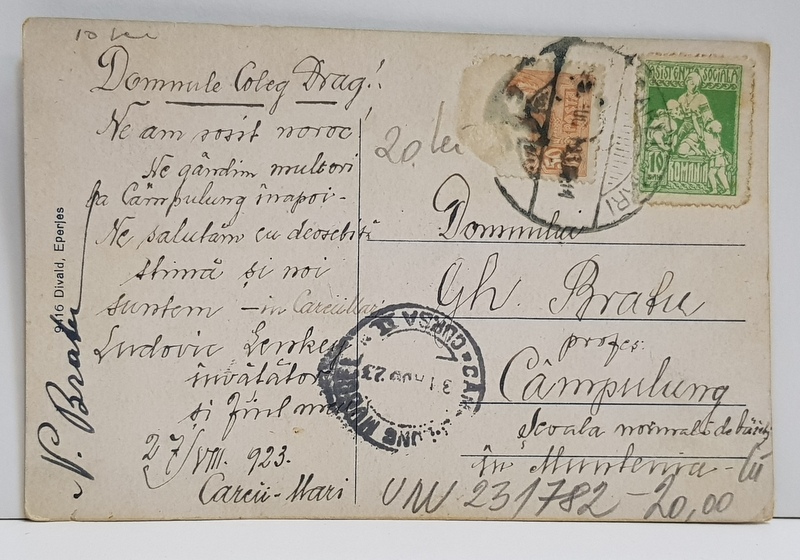 10 lei
Domnule Coleg Drag!
Ne am sosit noroc!
Ne gândim multori
la Câmpulung înapoi-
Ne salutăm cu deosebită
stimă și noi
suntem – in Careii-Mari
Ludovic Lenkey
învățător
și fiul
27/VIII. 923.
Careii-Mari
N. Bratu
9416 Divald, Eperjes
20 lei
ASISTENȚA SOCIALĂ
10
ROMANIA
50
ARI
Domnului
Gh. Bratu
profes.
Câmpulung
Școala normală de băieți
în Muntenia-
CURSA II
31 AUG 23
UNV 231782 – 20,00